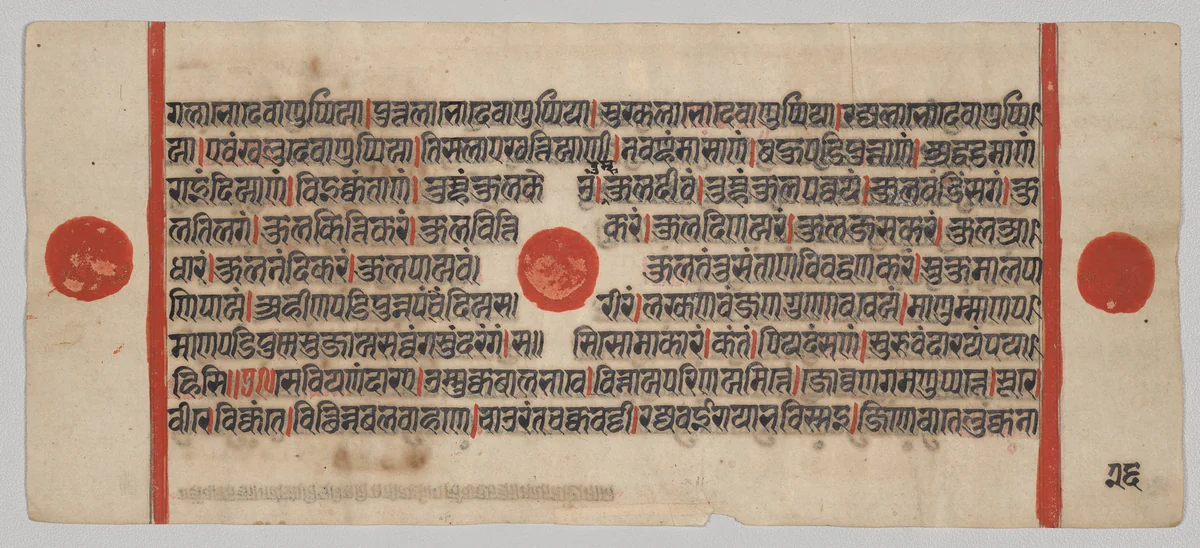 गलाभो देवाणुप्पिया।पुत्तलाभो देवाणुप्पिया।सुरकलाभो देवाणुप्पिया।रज्जलाभो देवाणुप्पि
या।एवं खलु देवाणुप्पिया।तिसलाए खत्तियाणी।नवण्हं मासाणं।बहुपडिपुन्नाणं।अद्धट्ठमाणं
राइंदियाणं।विइक्कंताणं।तुम्हं कुलकेउं।कुलदीवं।तुम्हं कुलपव्वयं।कुलवडिंसगं।कु
लतिलगं।कुलकित्तिकरं।कुलवित्तिकरं।कुलदिणयरं।कुलजसकरं।कुलआ
धारं।कुलनंदिकरं।कुलपायवं।कुलतंतुसंताणविवद्धणकरं।सुकुमालपा
णिपायं।अहीणपडिपुन्नपंचेंदियसरीरं।लरकणवंजणगुणोववेयं।माणुम्माणप
माणपडिपुन्नसुजायसव्वंगसुंदरंगं।ससिसोमाकारं।कंतं।पियदंसणं।सुरूवं दारयं पया
हिसि॥से वि य णं दारए।उम्मुक्कबालभावे।विन्नायपरिणयमित्ते।जोव्वणगमणुप्पत्ते।सूरे
वीरे।विक्कंते।विच्छिन्नबलवाहणे।चाउरंतचक्कवट्टी।रज्जवई राया भविस्सइ।जिणे वा तेलुक्कना